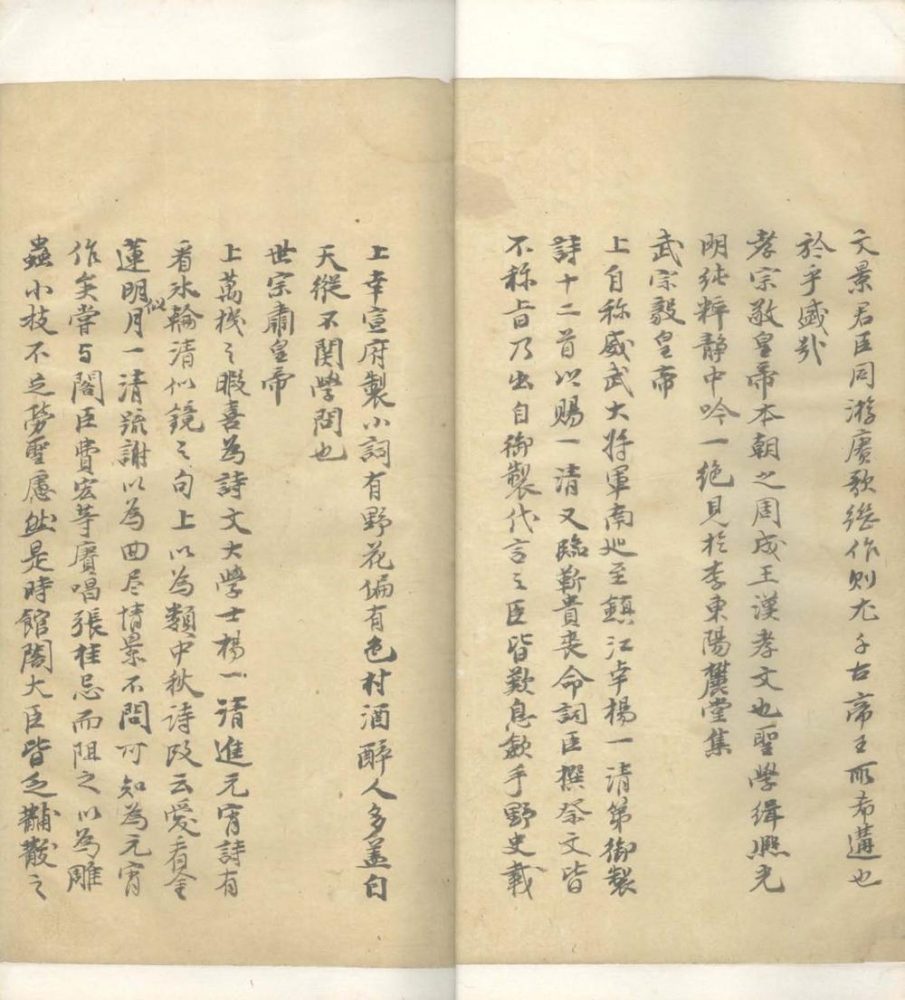 文景君臣同游賡歌繼作則尤千古帝王所希遘也
於乎盛哉
孝宗敬皇帝本朝之周成王漢孝文也聖學緝熙光
明純粹静中吟一絶見扵李東陽麓堂集
武宗毅皇帝
上自称威武大将軍南巡至鎮江幸楊一清第御製
詩十二首以賜一清又臨靳貴丧命詞臣撰祭文皆
不称旨乃出自御製代言之臣皆歎息歛手野史載
上幸宣府製小詞有野花偏有色村酒醉人多盖自
天縱不関學問也
世宗肅皇帝
上萬機之暇喜為詩文大學士楊一清進元宵詩有
看氷輪清似鏡之句上以為類中秋詩改云愛看金
蓮似明月一清疏謝以為曲尽情景不問可知為元宵
作矣嘗与閣臣費宏等賡唱張桂忌而阻之以為雕
蟲小技不足勞聖慮然是時館閣大臣皆乏黼黻之